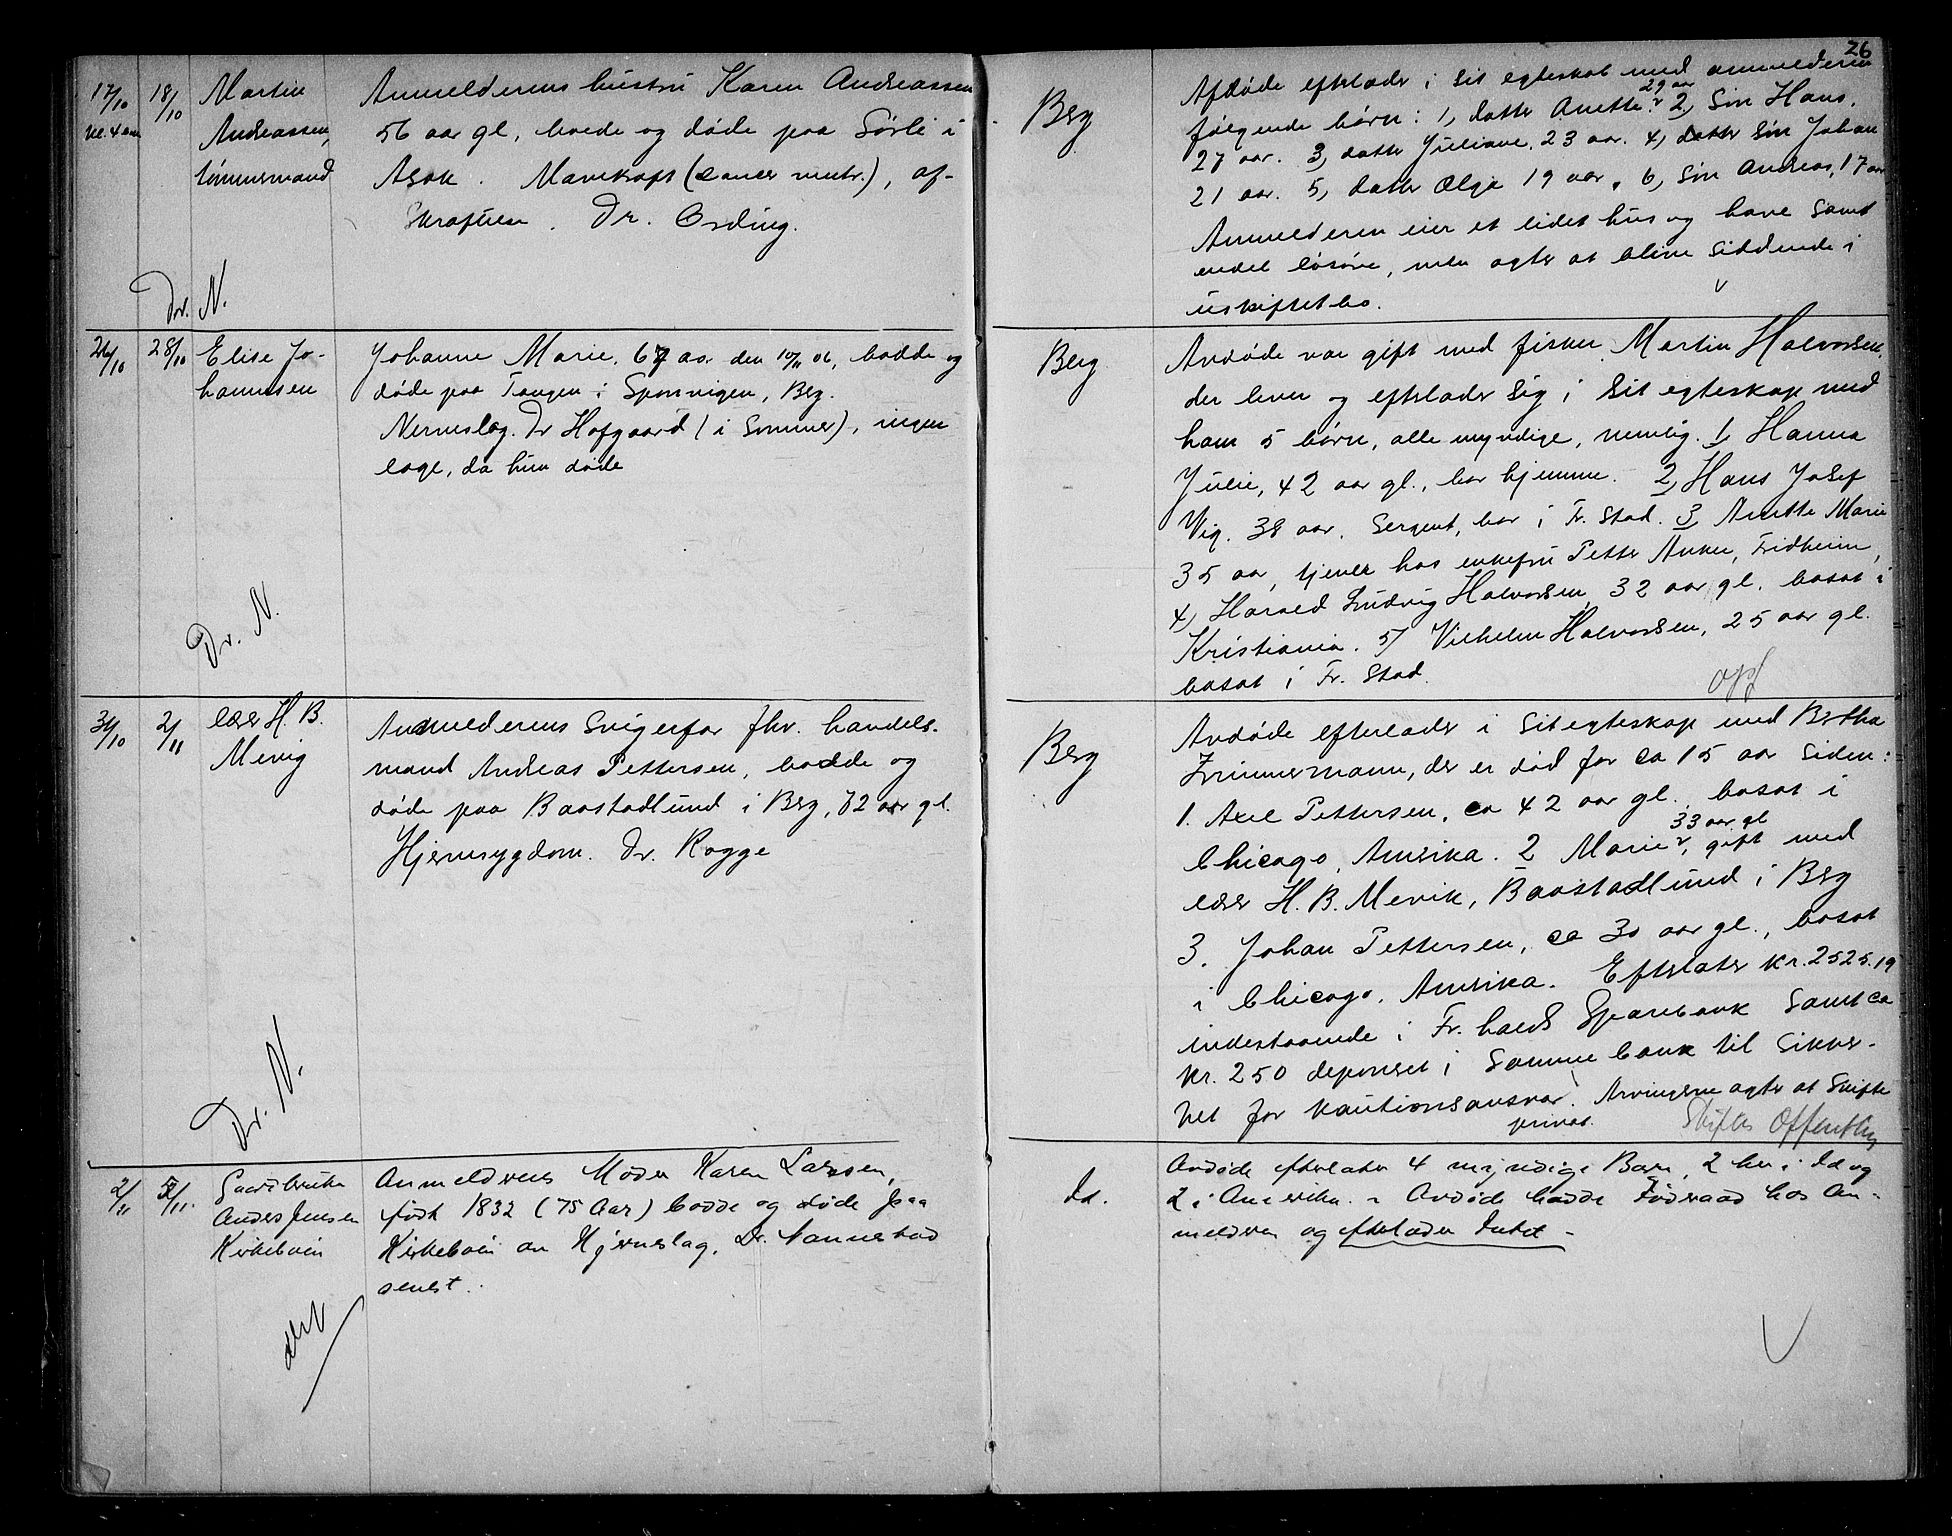 26
17/10
kl. 4 em
18/10
Martin
Andreassen,
tömmermand
Anmelderens hustru Karen Andreassen
56 aar gl, boede og döde paa Sörli i
Asak. Mavekræft (cancer ventr.), af-
Dr. Ording.
Dr. N.
Berg
Afdöde efterlader i sit egteskab med anmelderen
fölgende börn: 1, datter Anette 29 aar 2, Sön Hans,
27 aar. 3, datter Juliane, 23 aar. 4, datter Sön Johan
21 aar. 5, datter Olga 19 aar, 6, Sön Andreas, 17 aar
Anmelderen eier et lidet hus og have samt
endel lösöre, men agter at blive siddende i
uskiftet bo.
26/10
28/10
Elise Jo-
hannesen
Johanne Marie, 67 aar den 10/11 06, bodde og
döde paa Tangen i Sponvigen, Berg.
Nerveslag. Dr Hofgaard (i Sommer), ingen
læge, da hun döde
Dr. N.
Berg
Avdöde var gift med fisker Martin Halvorsen,
der lever og efterlader sig i sit egteskap med
ham 5 börn, alle myndige, nemlig. 1, Hanna
Julie, 42 aar gl., bor hjemme. 2, Hans Josef
Vig. 38 aar. Sergent, bor i Fr. Stad. 3, Anette Marie
35 aar, tjener hos enkefru Petter Anker, Fridheim,
4, Harald Ludvig Halvorsen, 32 aar gl. bosat i
Kristiania. 5/ Vilhelm Halvorsen, 25 aar gl.
bosat i Fr. Stad.
31/10
2/11
lærer H. B.
Mevig
Anmelderens Svigerfar fhv. handels-
mand Andreas Pettersen, bodde og
döde paa Baastadlund i Berg, 72 aar gl.
Hjernesygdom. Dr. Rogge
Dr. N.
Berg
Avdöde efterlader i sit egteskap med Bertha
Zimmermann, der er död for ca 15 aar siden:
1. Axel Pettersen, ca 42 aar gl., bosat i
Chicago, Amerika. 2 Marie, 33 aar gl gift med
lærer H. B. Mevik, Baastadlund i Berg
3. Johan Pettersen, ca 30 aar gl., bosat
i Chicago, Amerika. Efterlater kr. 2525.19
indestaaende i Fr. halds Sparebank samt ca
kr. 250 deponeret i samme bank til sikker-
het for kautionsansvar. Arvingerne agter at skifte
privat. Skiftes Offentlig
2/11
5/11.
Gaardbruker
Anders Jensen
Kirkebøen
Anmelderens Moder Karen Larssen,
født 1832 (75 Aar) bodde og døde paa
Kirkebøen av Hjerneslag, Dr. Nannestad
senest.
Id.
Avdøde efterlater 4 myndige Børn, 2 her i Id og
2 i Amerika. – Avdøde hadde Føderaad hos An-
melderen og efterlader Intet –